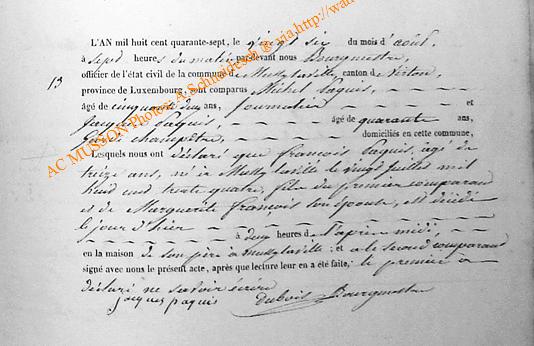 L'AN mil huit cent quarante-sept, le vingt six du mois d'août,
à sept heures du matin par devant nous Bourgmestre,
officier de l'état civil de la commune de Mussy la ville, canton de Virton,
13
province de Luxembourg, ont comparus Michel Paquis,
âgé de cinquante deux ans, journalier et
Jacques Paquis, âgé de quarante ans,
Garde champêtre, domiciliés en cette commune,
Lesquels nous ont déclaré que françois Paquis, âgé de
treize ans, né à Mussy la ville le vingt Juillet mil
huit cent trente quatre, fils du premier comparant
et de Marguerite françois son épouse, est décédé
le jour d'hier
à deux heures de l'après midi,
en la maison de son père à mussy la ville; et a le second comparant
signé avec nous le présent acte, après que lecture leur en a été faite, le premier a
déclaré ne savoir écrire
jacques paquis Dubois Bourgmestre
AC MUSSON Photos: A.Schmidesch @ via.http://wa